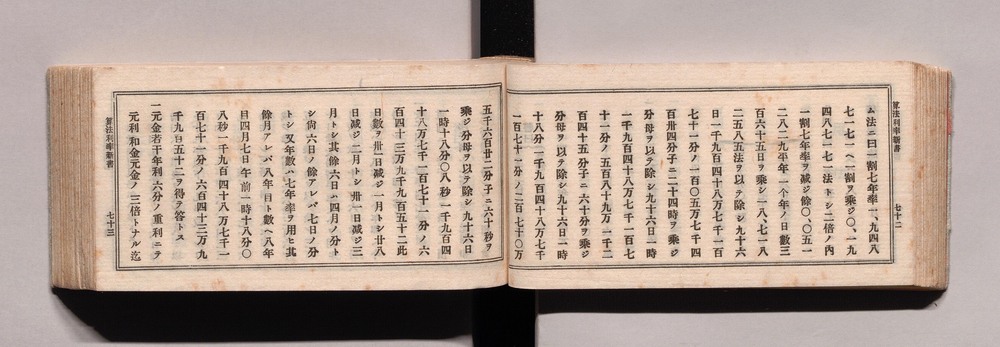 算法利率新書 七十二
ム法ニ曰一割七年率一、九四八
七一七一ヘ一割ヲ乘ジ〇、一九
四八七一七一法トシ二倍ノ內
一割七年率ヲ減ジ餘〇、〇五一
二八二九平年一个年ノ日數三
百六十五日ヲ乘シ一八、七一八
二五八五法ヲ以テ除シ九十六
日一千九百四十八万七千一百
七十一分ノ一百〇五万七千四
百卅四分子ニ二十四時ヲ乘ジ
分母ヲ以テ除シ九十六日一時
一千九百四十八万七千一百七
十一分ノ五百八十九万一千二
百四十五分子ニ六十分ヲ乘ジ
分母ヲ以テ除シ九十六日一時
十八分一千九百四十八万七千
一百七十一分ノ二百七十〇万
五千六百廿二分子ニ六十秒ヲ
乘ジ分母ヲ以テ除シ九十六日
一時十八分〇八秒一千九百四
十八万七千一百七十一分ノ六
百四十三万九千九百五十二此
日數ヲ卅一日減ジ一月トシ廿八
日減ジ二月トシ卅一日減ジ三
月トシ其餘六日ハ四月ノ分ト
シ尙六日ノ餘アレバ七日ノ分
トシ又年數ハ七年率ヲ用ヒ其
餘月アレバ八年目ト數ヘ八年
目四月七日午前一時十八分〇
八秒一千九百四十八万七千一
百七十一分ノ六百四十三万九
千九百五十二ヲ得ヲ答トス
一元金若干年利六分ノ重利ニテ
元利和金元金ノ三倍トナル迄
算法利率新書 七十三